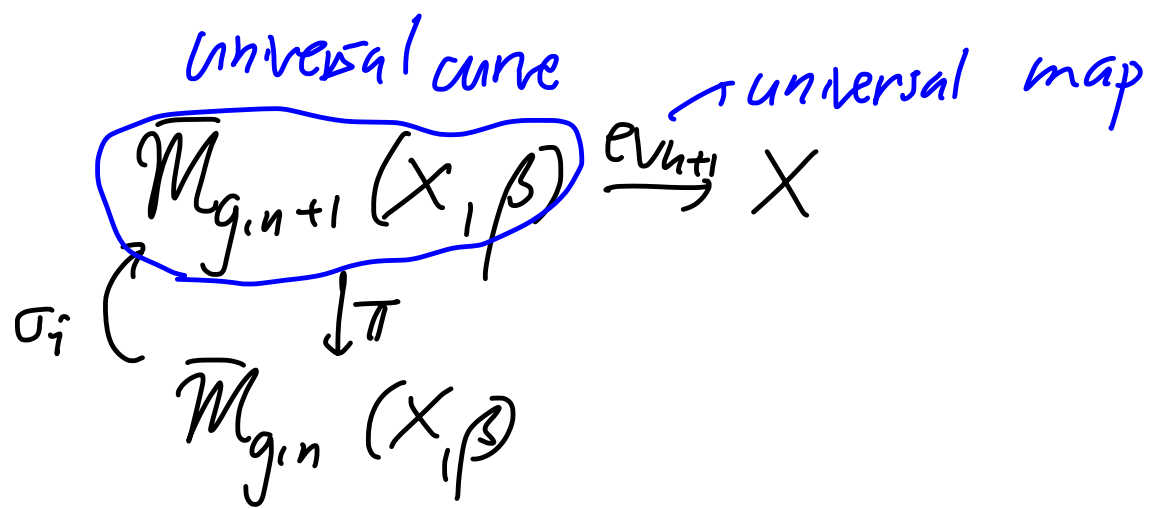 universal curve
universal map
$\overline{\mathcal{M}}_{g,n+1}(X,\beta) \xrightarrow{ev_{n+1}} X$
$\sigma_i$ $\downarrow \pi$
$\overline{\mathcal{M}}_{g,n}(X,\beta)$